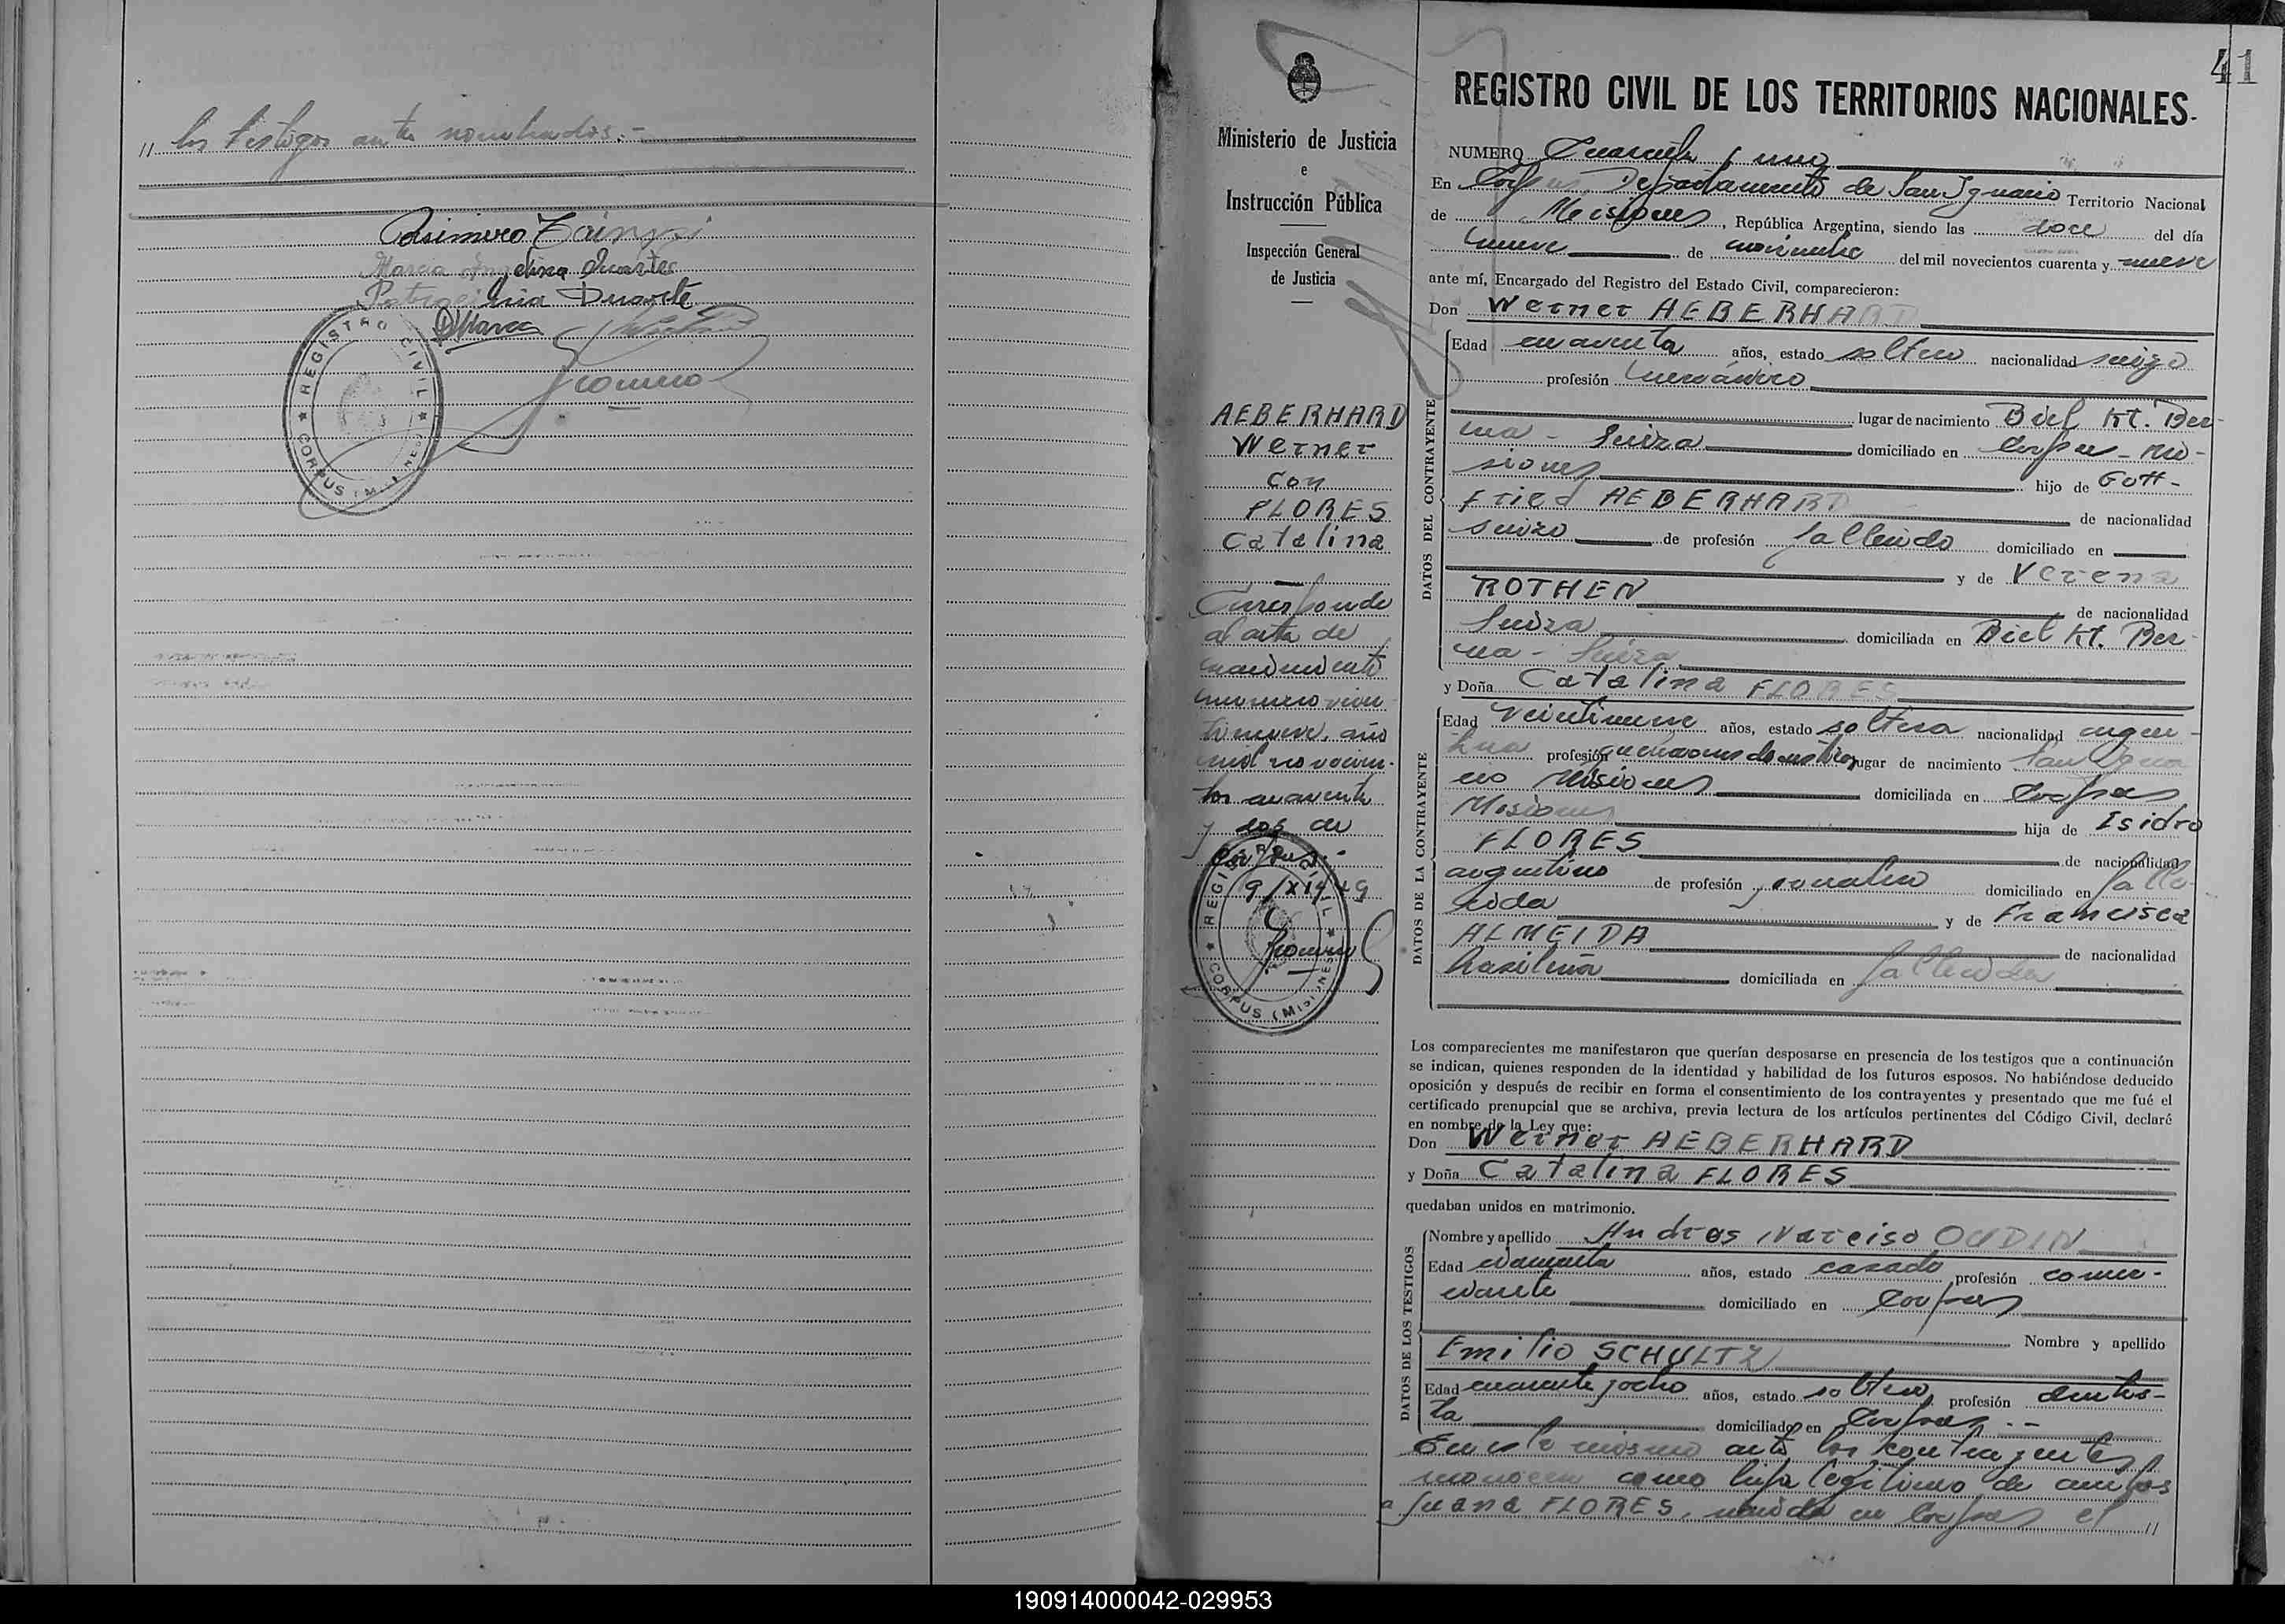 " los testigos ante nombrados.-
Maria Angelina Duarte
Patrocinia Duarte
REGISTRO CIVIL
CORPUS (MISIONES)
41
Ministerio de Justicia
e
Instrucción Pública
Inspección General
de Justicia
AEBERHARD
Werner
con
FLORES
Catalina
Corresponde
al acta de
nacimiento
numero vein-
tinueve, año
mil novecien-
tos cuarenta
y dos de
Corpus.-
9/XI/949
REGISTRO CIVIL
CORPUS (MISIONES)
REGISTRO CIVIL DE LOS TERRITORIOS NACIONALES.
NUMERO Cuarenta y uno
En Corpus, Departamento de San Ignacio Territorio Nacional
de Misiones, República Argentina, siendo las doce del día
nueve de noviembre del mil novecientos cuarenta y nueve
ante mí, Encargado del Registro del Estado Civil, comparecieron:
Don Werner AEBERHARD
DATOS DEL CONTRAYENTE
Edad cuarenta años, estado soltero nacionalidad suizo
profesión mecánico
lugar de nacimiento Biel Kt. Ber-
na - Suiza domiciliado en Corpus - Mi-
siones hijo de Gott-
fried AEBERHARD de nacionalidad
suizo de profesión fallecido domiciliado en
y de Verena
ROTHEN de nacionalidad
Suiza domiciliada en Biel Kt. Ber-
na - Suiza
y Doña Catalina FLORES
DATOS DE LA CONTRAYENTE
Edad veintinueve años, estado soltera nacionalidad argen-
tina profesión quehaceres domésticos lugar de nacimiento San Igna-
cio Misiones domiciliada en Corpus
Misiones hija de Isidro
FLORES de nacionalidad
argentino de profesión domiciliado en falle-
cido y de Francisca
ALMEIDA de nacionalidad
brasileña domiciliada en fallecida
Los comparecientes me manifestaron que querían desposarse en presencia de los testigos que a continuación
se indican, quienes responden de la identidad y habilidad de los futuros esposos. No habiéndose deducido
oposición y después de recibir en forma el consentimiento de los contrayentes y presentado que me fué el
certificado prenupcial que se archiva, previa lectura de los artículos pertinentes del Código Civil, declaré
en nombre de la Ley que:
Don Werner AEBERHARD
y Doña Catalina FLORES
quedaban unidos en matrimonio.
DATOS DE LOS TESTIGOS
Nombre y apellido Andres Narciso OUDIN
Edad años, estado casado profesión comer-
ciante domiciliado en Corpus
Nombre y apellido
Emilio SCHULTZ
Edad cuarenta y ocho años, estado soltero, profesión dentis-
ta domiciliado en Corpus.-
En este mismo acto los contrayentes
reconocen como hija legitima de ambos
a Juana FLORES, nacida en Corpus el "
190914000042-029953